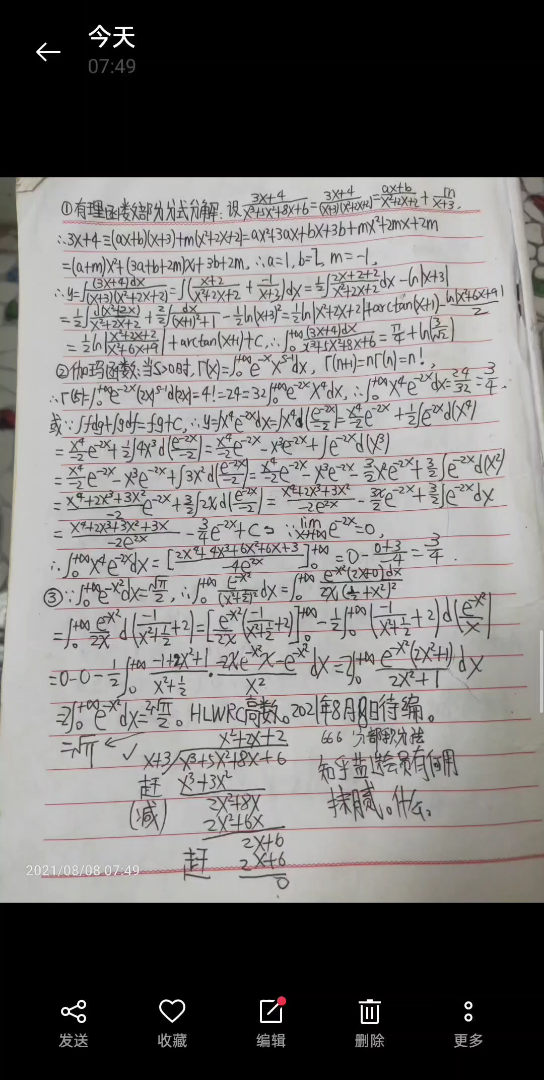 今天
07:49
①有理函数部分分式分解:设(3x+4)/(x³+5x²+8x+6)=(3x+4)/((x+3)(x²+2x+2))=(ax+b)/(x²+2x+2)+m/(x+3).
∴3x+4=(ax+b)(x+3)+m(x²+2x+2)=ax²+3ax+bx+3b+mx²+2mx+2m
=(a+m)x²+(3a+b+2m)x+3b+2m,∴a=1,b=2,m=-1,
∴y=∫(3x+4)dx/((x+3)(x²+2x+2))=∫((x+2)/(x²+2x+2)+(-1)/(x+3))dx=½∫(2x+2+2)/(x²+2x+2)dx-ln|x+3|
=½∫d(x²+2x)/(x²+2x+2)+2/2∫dx/((x+1)²+1)-½ln(x+3)²=½ln|x²+2x+2|+arctan(x+1)-ln|x²+6x+9|/2
=½ln|(x²+2x+2)/(x²+6x+9)|+arctan(x+1)+C,∴∫₀^{+∞}(3x+4)dx/(x³+5x²+8x+6)=π/4+ln(3/√2)
②伽玛函数:当S>0时,Γ(x)=∫₀^{+∞}e^{-x}x^{s-1}dx,Γ(n+1)=nΓ(n)=n!,
∴Γ(5)=∫₀^{+∞}e^{-2x}(2x)^{5-1}d(2x)=4!=24=32∫₀^{+∞}e^{-2x}x⁴dx,∴∫₀^{+∞}x⁴e^{-2x}dx=24/32=3/4.
或∵∫fdg+∫gdf=fg+C,∴y=∫x⁴e^{-2x}dx=∫x⁴d(e^{-2x}/-2)=x⁴/-2 e^{-2x}+½∫e^{-2x}d(x⁴)
=x⁴/-2 e^{-2x}+½∫4x³d(e^{-2x}/-2)=x⁴/-2 e^{-2x}-x³e^{-2x}+∫e^{-2x}d(x³)
=x⁴/-2 e^{-2x}-x³e^{-2x}+∫3x²d(e^{-2x}/-2)=x⁴/-2 e^{-2x}-x³e^{-2x}-3/2x²e^{-2x}+3/2∫e^{-2x}d(x²)
=(x⁴+2x³+3x²)/-2 e^{-2x}+3/2∫2xd(e^{-2x}/-2)=(x⁴+2x³+3x²)/(-2e^{2x})-3x/2 e^{-2x}+3/2∫e^{-2x}dx
=(x⁴+2x³+3x²+3x)/(-2e^{2x})-3/4e^{-2x}+C。∵lim_{x→+∞}e^{-2x}=0,
∴∫₀^{+∞}x⁴e^{-2x}dx=[(2x⁴+4x³+6x²+6x+3)/(-4e^{2x})]₀^{+∞}=0-(0+3)/-4=3/4.
③∵∫₀^{+∞}e^{-x²}dx=√π/2,∴∫₀^{+∞}e^{-x²}/(x²+½)²dx=∫₀^{+∞}e^{-x²}(2x+0)dx/(2x(½+x²)²)
=∫₀^{+∞}e^{-x²}/2x d(-1/(x²+½)+2)=[e^{-x²}/2x(-1/(x²+½)+2)]₀^{+∞}-½∫₀^{+∞}(-1/(x²+½)+2)d(e^{-x²}/x)
=0-0-½∫₀^{+∞}(-1+2x²+1)/(x²+½)·(-2xe^{-x²}x-e^{-x²})/x² dx=2∫₀^{+∞}e^{-x²}(2x²+1)/(2x²+1)dx
=2∫₀^{+∞}e^{-x²}dx=2√π/2。HLWRC高数。2021年8月8日待编。
=√π
x²+2x+2
666 分部积分法
✓ x+3√x³+5x²+8x+6
知乎盐选会员有何用
赶 x³+3x²
(减) 2x²+8x
2x²+6x
2x+6
赶 2x+6
0
2021/08/08 07:49
发送
收藏
编辑
删除
更多